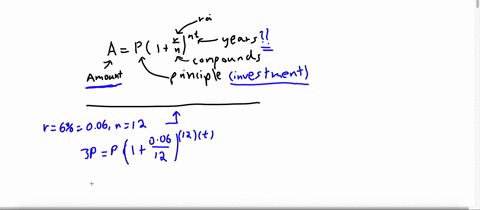 roi
A = P(1 + r/n)^nt years??
compounds
Amount principle (investment)
r = 6% = 0.06, n = 12
3P = P(1 + 0.06/12)^(12)(t)